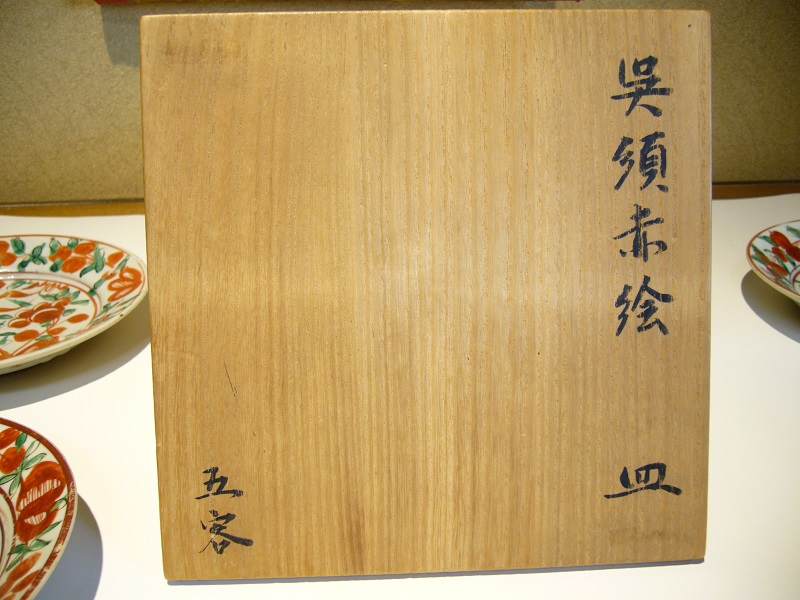 呉須赤絵 皿
五客